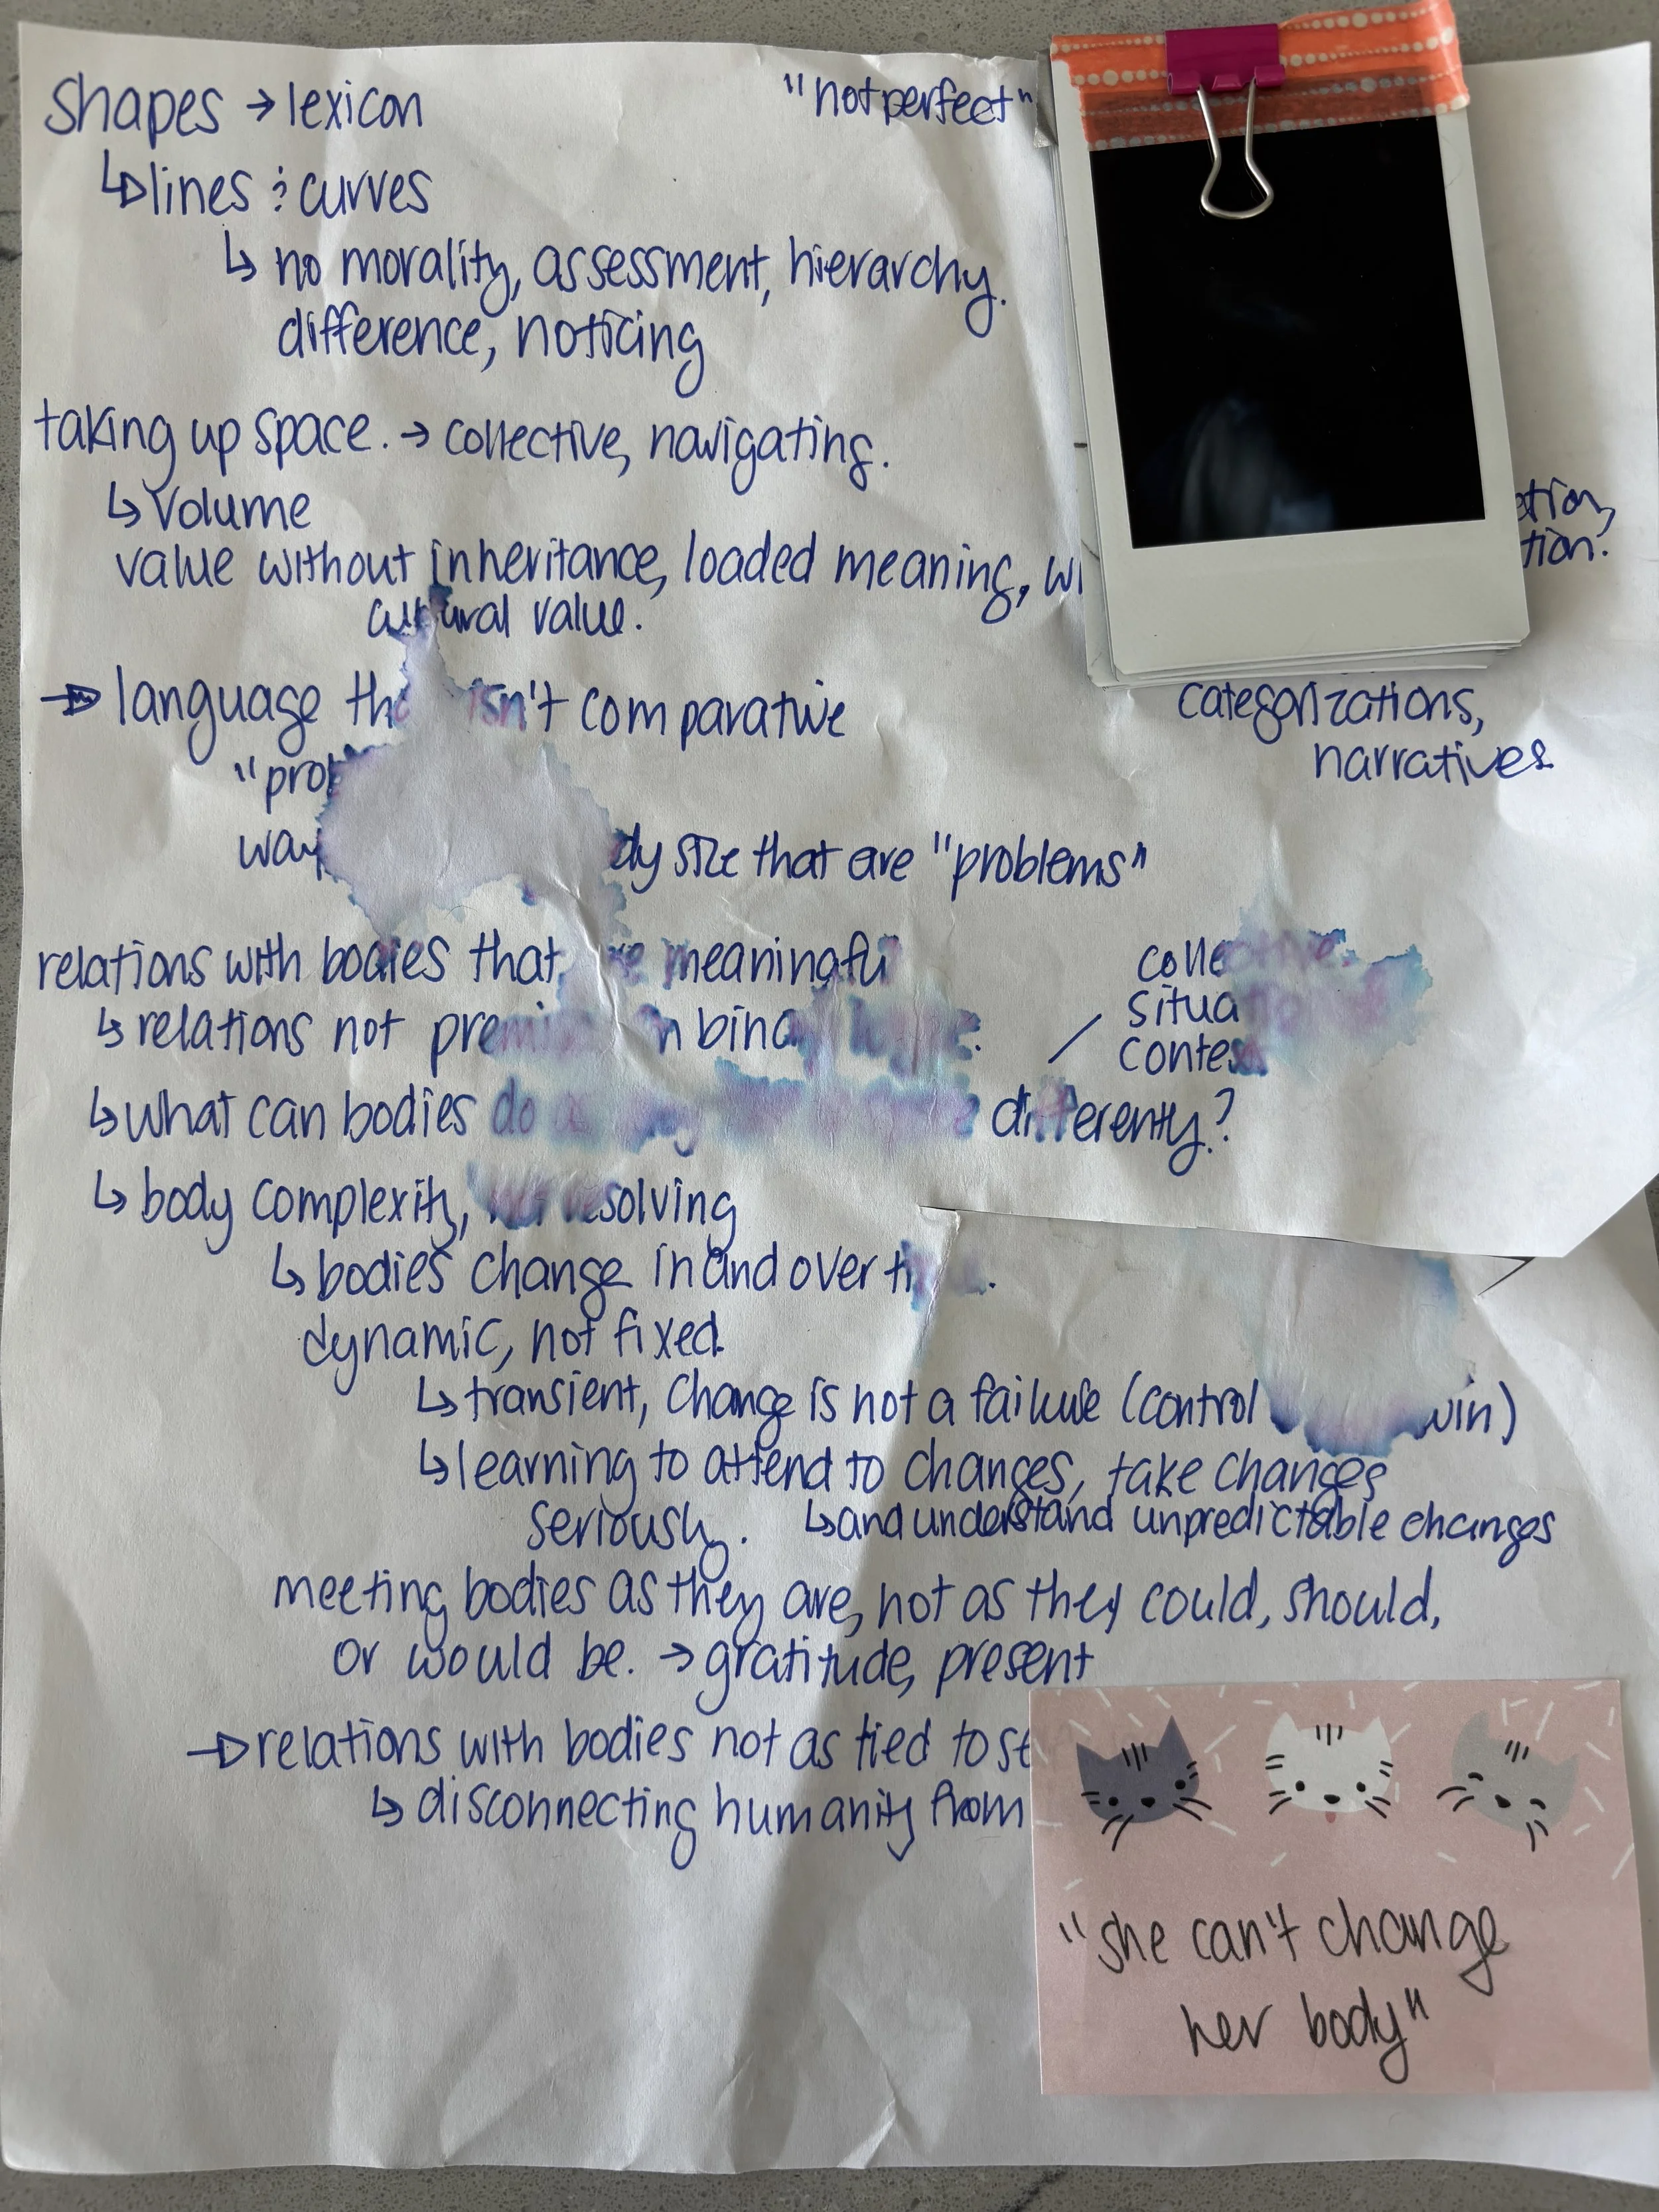 shapes → lexicon
"not perfect"
↳ lines & curves
↳ no morality, assessment, hierarchy.
difference, noticing
taking up space. → collective, navigating.
↳ volume
value without inheritance, loaded meaning,
cultural value.
→ language isn't comparative
categorizations,
narratives
size that are "problems"
relations with bodies that meaningful
↳ relations not
↳ what can bodies do differently?
↳ body complexity,
↳ bodies change in and over
dynamic, not fixed.
↳ transient, change is not a failure (control win)
↳ learning to attend to changes, take changes
seriously. ↳ and understand unpredictable changes
meeting bodies as they are, not as they could, should,
or would be. → gratitude, present
→ relations with bodies not as tied to
↳ disconnecting humanity from
"she can't change
her body"